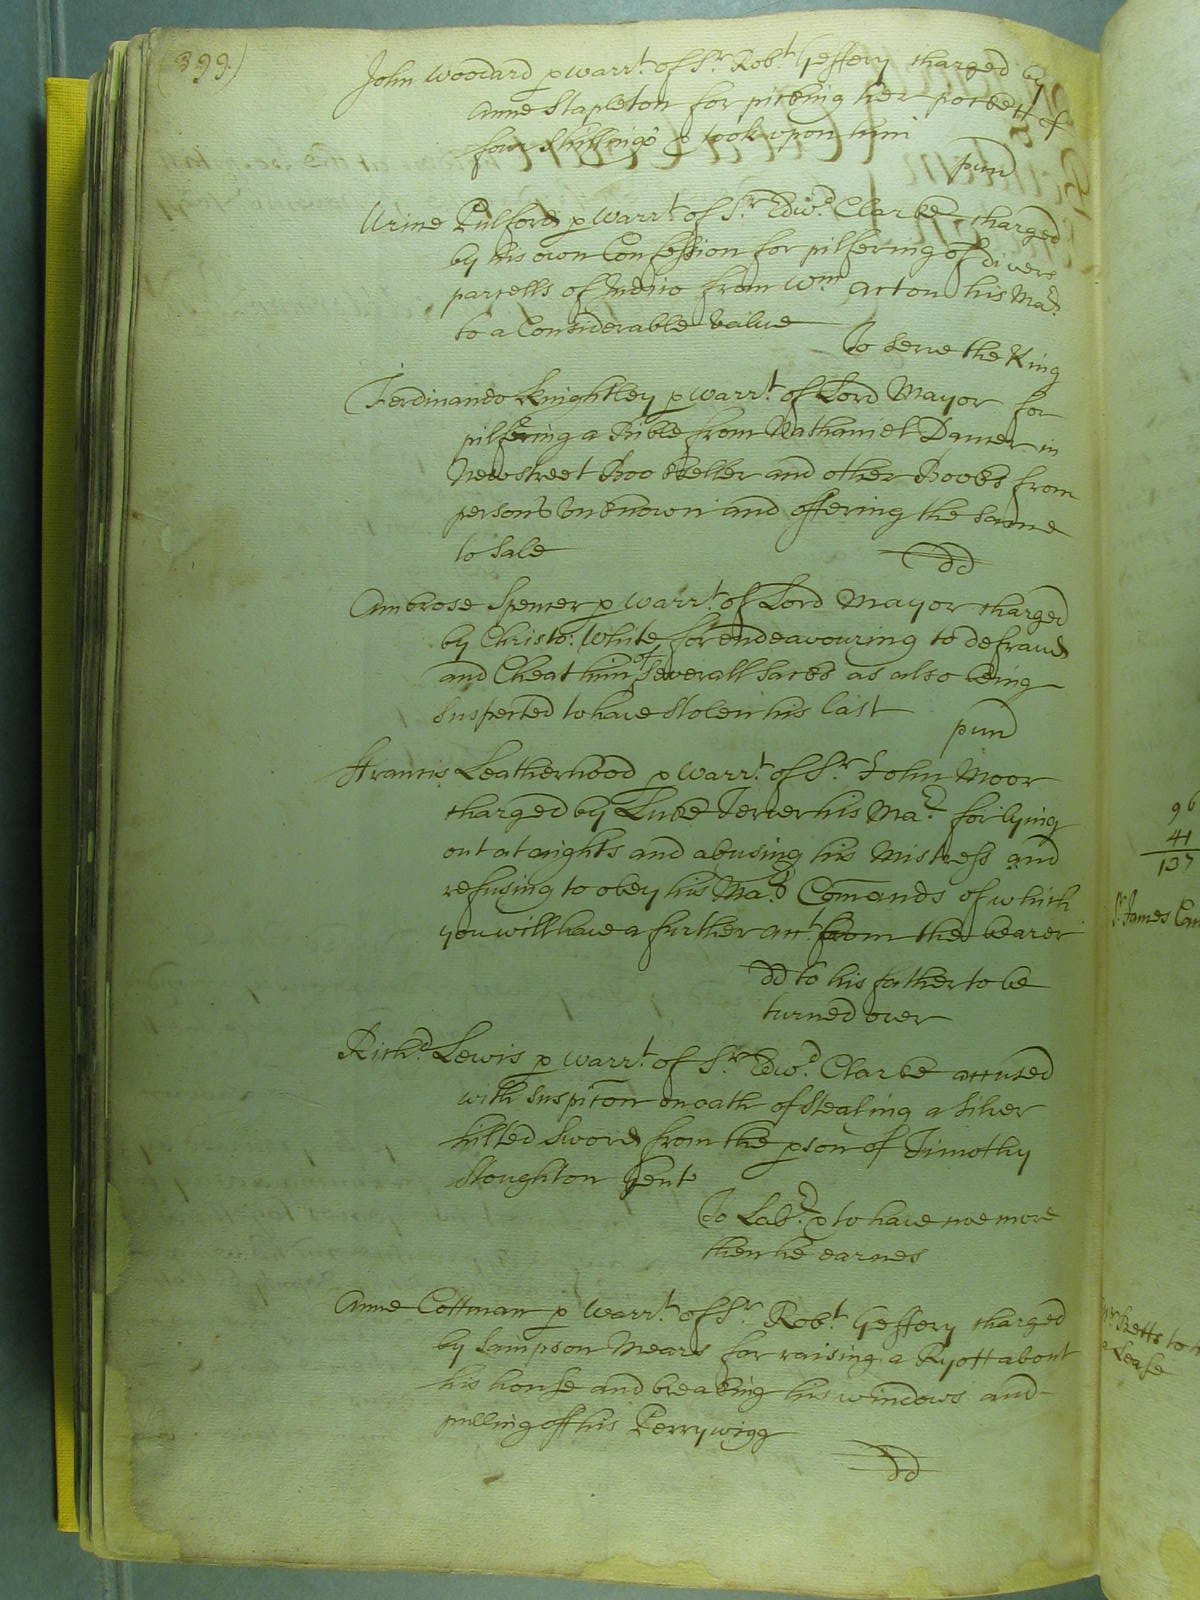 (399)
John Woodard p Warrt. of Sr. Robt. Geffery charged by
Anne Stapleton for picking her pockett of
four Shillings & took upon him
pund
Urine Pulford p Warrt. of Sr. Edwd. Clarke charged
by his own Confession for pilfering of divers
parcells of Indico from Wm. Acton his Mar.
to a Considerable value
To serve the King
Ferdinando Knightley p Warrt. of Lord Mayor for
pilfering a Bible from Nathaniel Damer in
Newstreet Bookseller and other Books from
persons unknown and offering the same
to sale
dd
Ambrose Spencer p Warrt. of Lord Mayor charged
by Christo: White for endeavouring to defraud
and Cheat him of Severall Sacks as also being
suspected to have stolen his last
pund
Francis Leatherhood p Warrt. of Sr. John Moor
charged by Luke Terrer his Mar. for lying
out at nights and abusing his Mistress and
refusing to obey his Mars. Comands of which
you will have a further acct. from the bearer
dd to his father to be
turned over
Richd. Lewis p Warrt. of Sr. Edwd. Clarke accused
with suspicon on oath of stealing a Silver
hilted Sword from the pson of Timothy
Stoughton Gent
To Labr. & to have noe more
then he earnes
Anne Cottman p Warrt. of Sr. Robt. Geffery charged
by Sampson Mears for raising a Ryott about
his house and breaking his windows and
pulling off his Perrywigg
dd
96
41
137
Sr. James
Betts to
a Lease